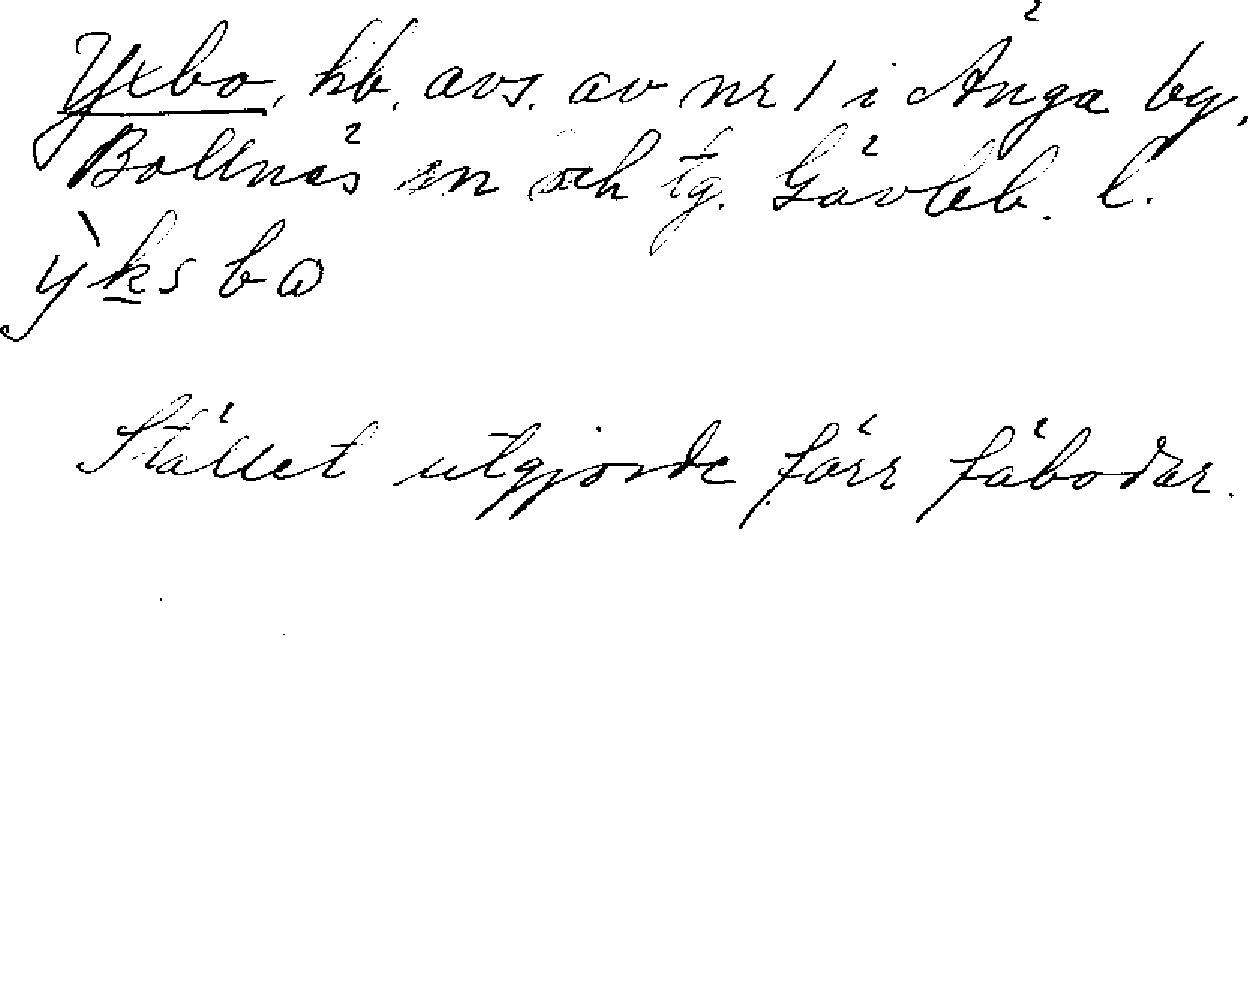 Yxbo, hb. avs. av nr 1 i Änga by,
Bollnäs sn och tg. Gävleb. l.
y̏ksbɷ
Stället utgjorde förr fäbodar.